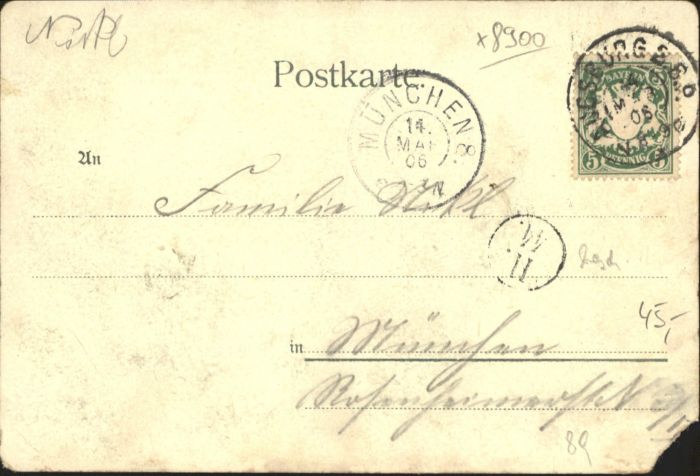 x8900
Postkarte.
MÜNCHEN 8.
14.
MAI
06
N
AUGSBURG
06
BAYERN
5 PFENNIG 5
An
Familie Nickl
II.
M.
45,-
in München
Rosenheimerstr. N
89